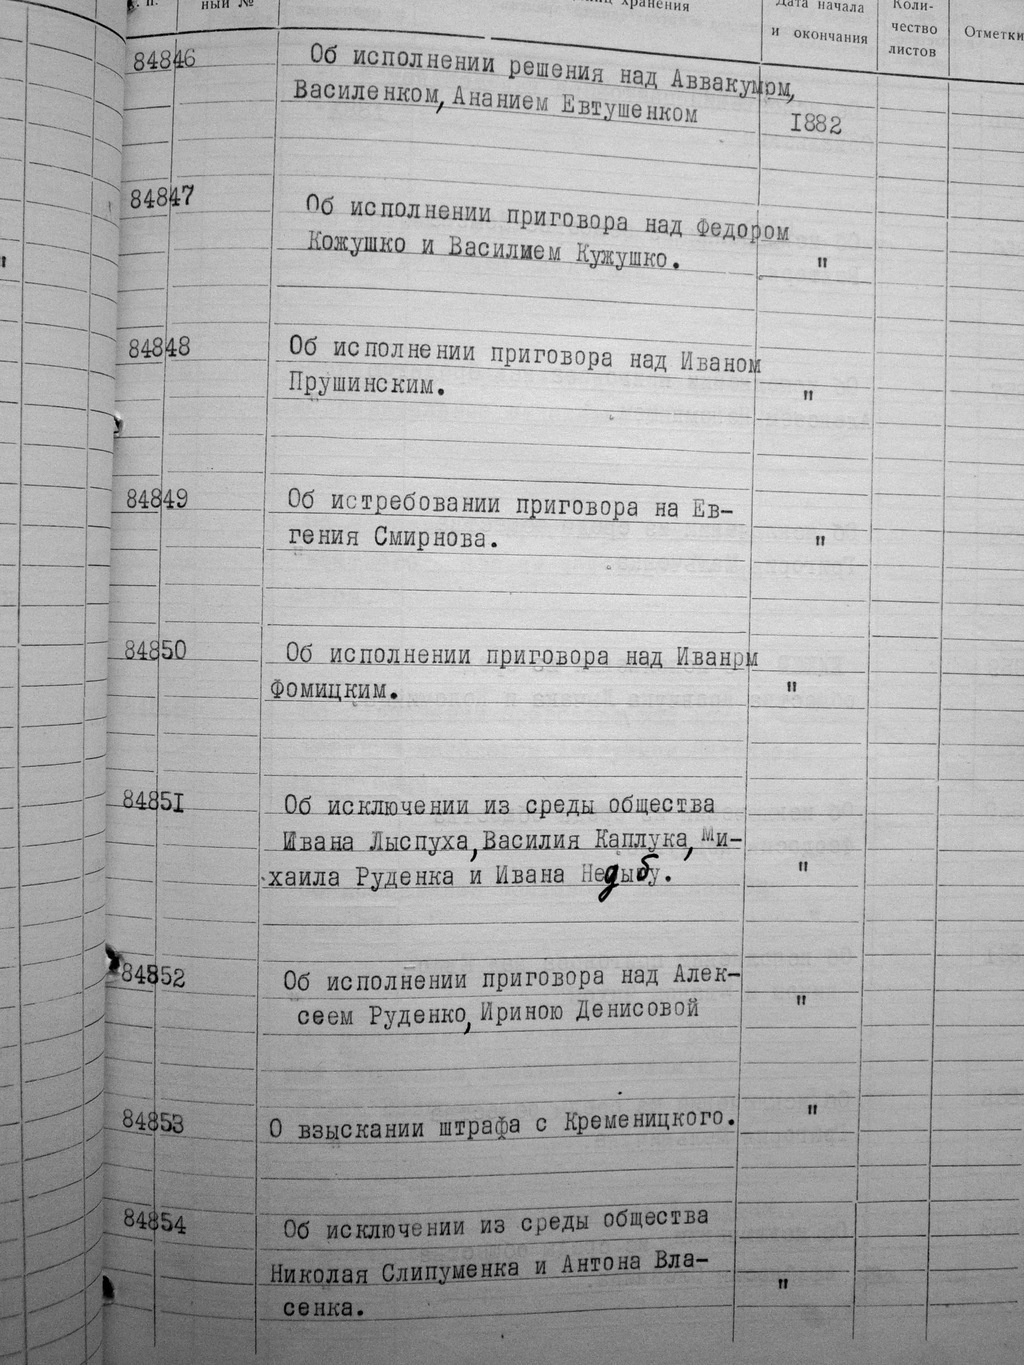 п.
ный №
хранения
Дата начала
и окончания
Коли-
чество
листов
Отметки
84846 Об исполнении решения над Аввакумом,
Василенком, Ананием Евтушенком 1882
84847 Об исполнении приговора над Федором
Кожушко и Василием Кужушко. "
84848 Об исполнении приговора над Иваном
Прушинским. "
84849 Об истребовании приговора на Ев-
гения Смирнова. "
84850 Об исполнении приговора над Иванрм
Фомицким. "
84851 Об исключении из среды общества
Ивана Лыспуха, Василия Каплука, Ми-
хаила Руденка и Ивана Недыбу. "
84852 Об исполнении приговора над Алек-
сеем Руденко, Ириною Денисовой "
84853 О взыскании штрафа с Кременицкого. "
84854 Об исключении из среды общества
Николая Слипуменка и Антона Вла-
сенка. "